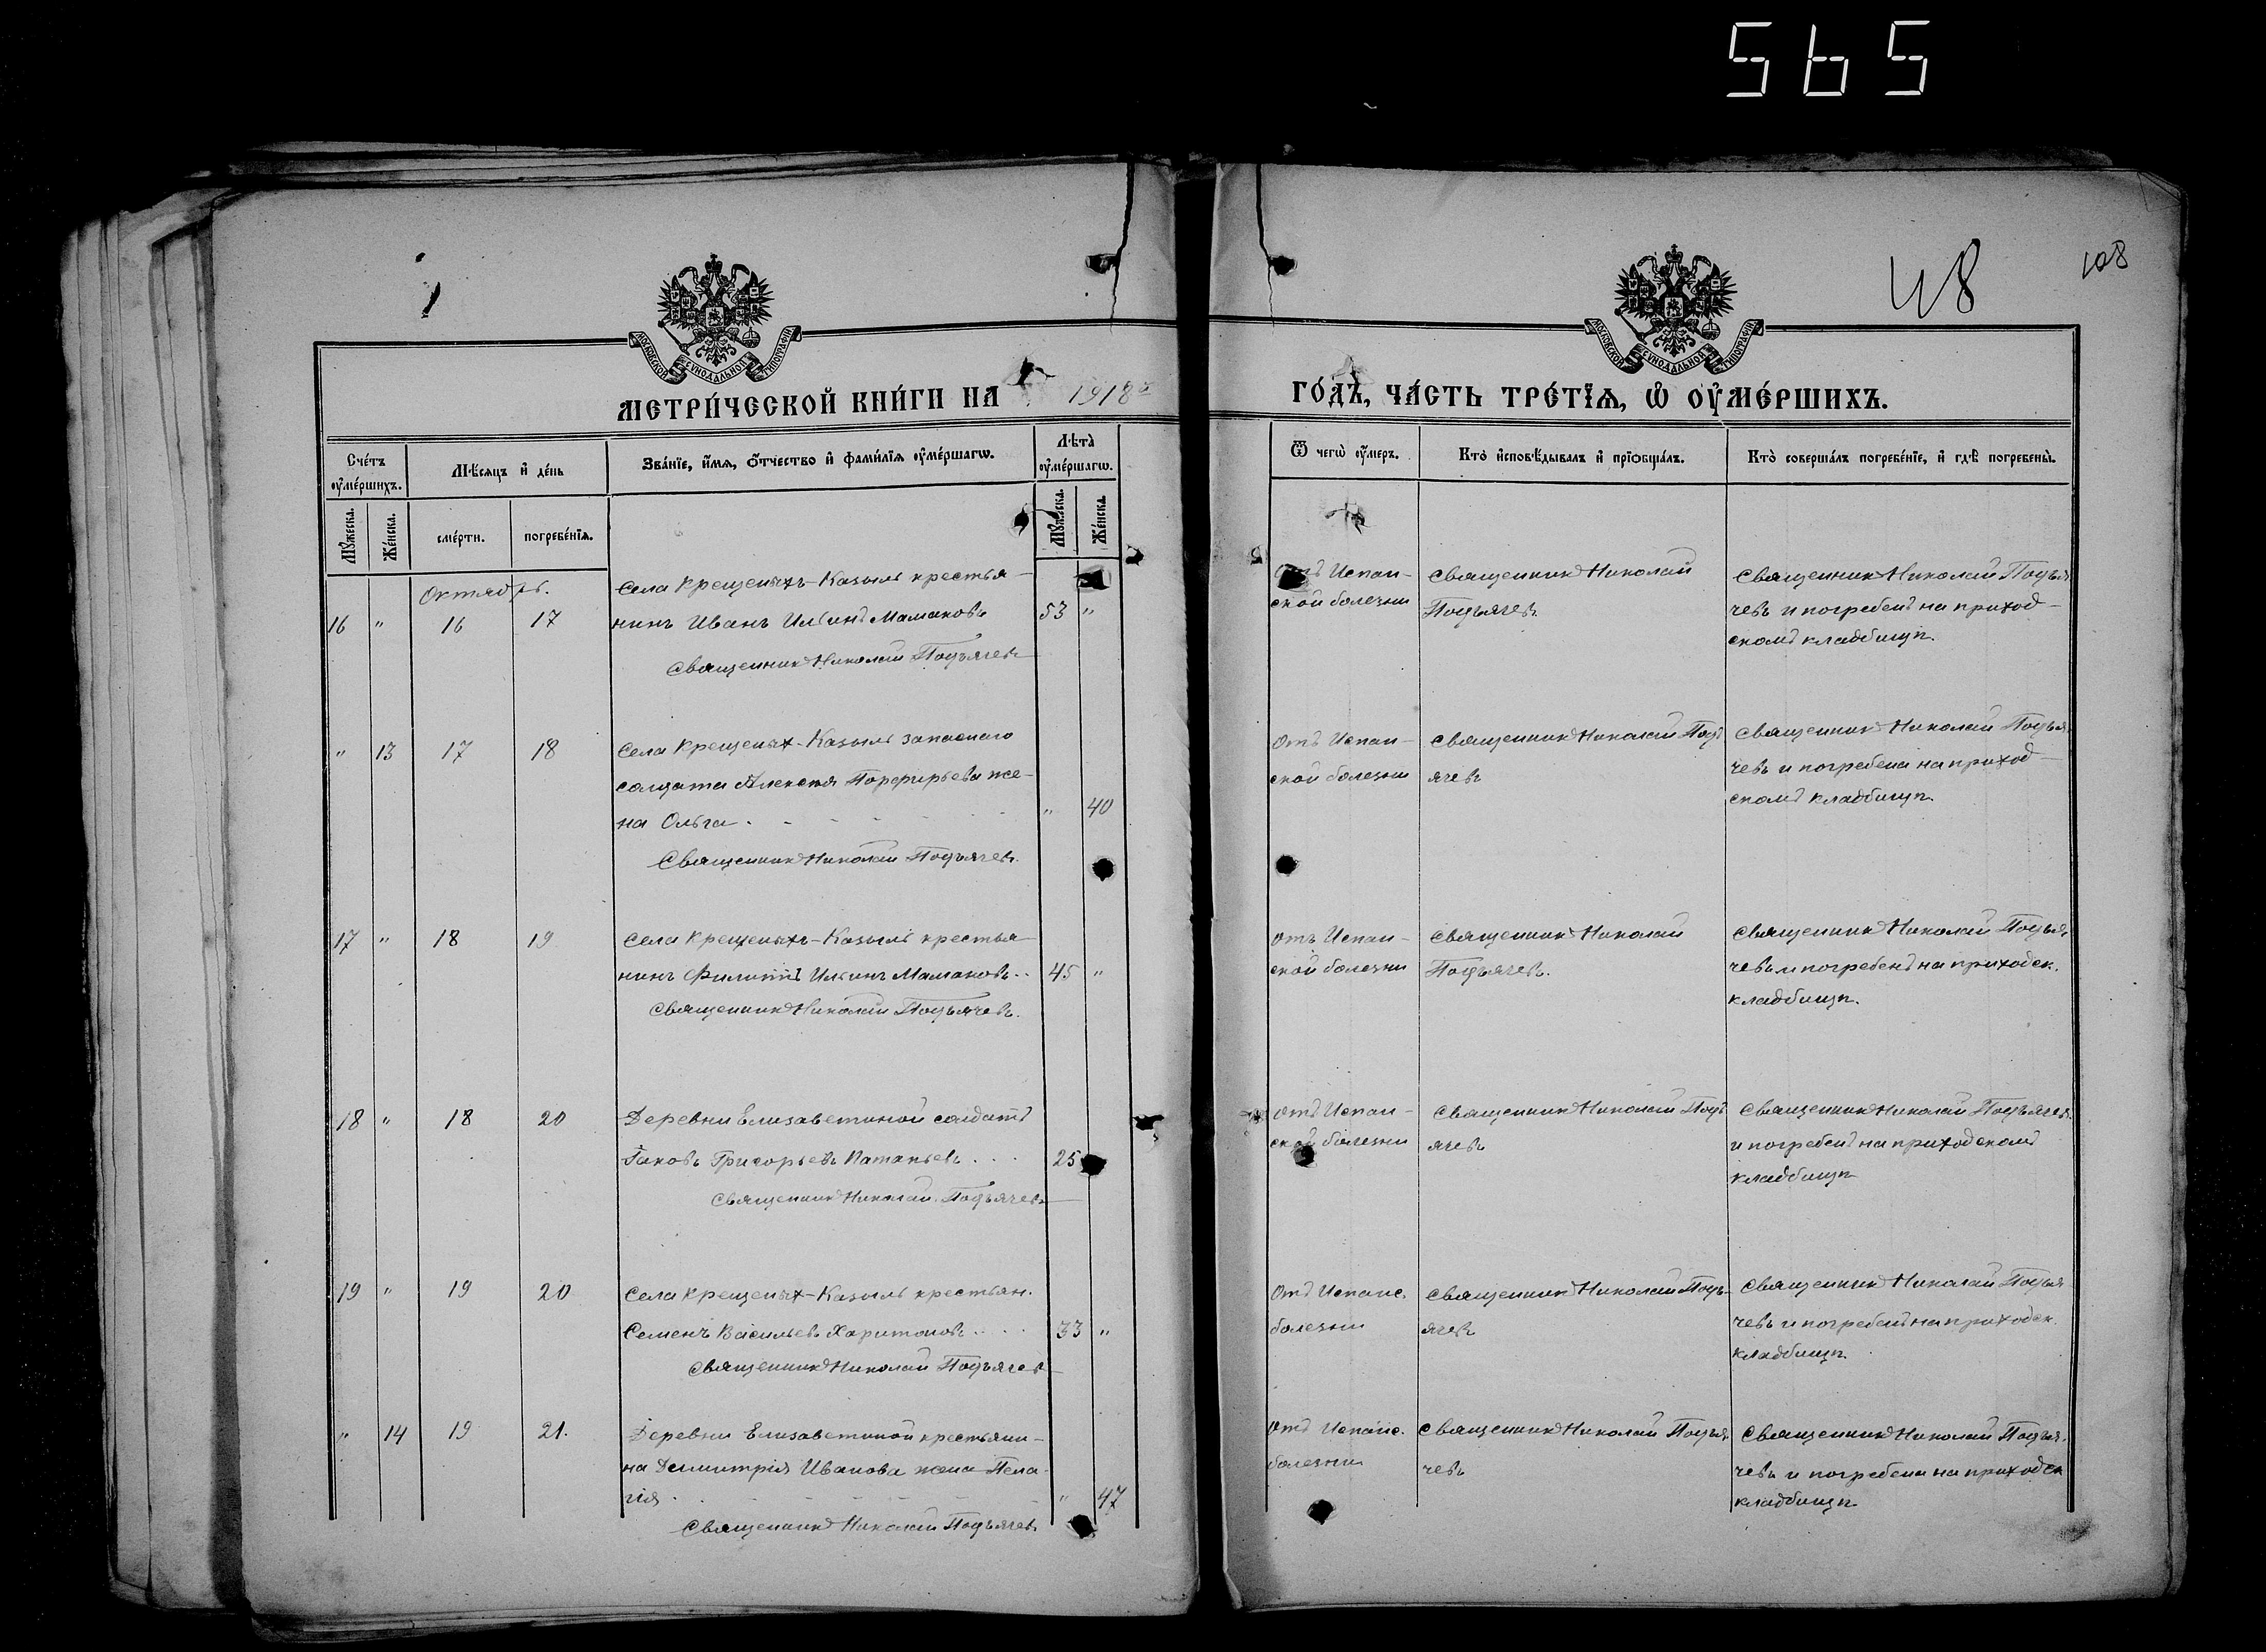 565
48
108
МОСКОВСКОЙ СѴНОДАЛЬНОЙ ТИПОГРАФІИ
МОСКОВСКОЙ СѴНОДАЛЬНОЙ ТИПОГРАФІИ
МЕТРИ́ЧЕСКОЙ КНИ́ГИ НА 1918 г
ГО́ДЪ, ЧА́СТЬ ТРЕ́ТІѦ, Ѡ҆ ОУ҆МЕ́РШИХЪ.
Сче́тъ оу҆ме́ршихъ.
Мѣ́сяцъ и҆ де́нь
Зва́нїе, и҆́мѧ, ѻ҆́тчество и҆ фами́лїѧ оу҆ме́ршагѡ.
Лѣ́та оу҆ме́ршагѡ.
Ѿ чегѡ̀ оу҆́меръ.
Кто̀ и҆сповѣ́дывалъ и҆ прїѡбща́лъ.
Кто̀ соверша́лъ погребе́нїе, и҆ гдѣ̀ погребены̀.
Мꙋ́жеска.
Же́нска.
сме́рти.
погребе́нїѧ.
Мꙋ́жеска.
Же́нска.
Октябрь.
Села Крещеныхъ-Казыль крестья-
16 " 16 17 нинъ Иванъ Ильинъ Мамаковъ 53 "
Священникъ Николай Подъячевъ
Отъ Испан-
ской болезни
Священникъ Николай
Подъячевъ.
Священникъ Николай Подъя
чевъ и погребенъ на приход-
скомъ кладбищѣ.
" 13 17 18 Села Крещеных-Казыль запаснаго
солдата Алексѣя Порфирьева же-
на Ольга " 40
Священникъ Николай Подъячевъ.
Отъ Испан-
ской болезни
Священникъ Николай Подъ
ячевъ
Священникъ Николай Подъя
чевъ и погребена на приход-
скомъ кладбищѣ.
17 " 18 19 Села Крещеныхъ-Казыль крестья-
нинъ Филиппъ Ильинъ Мамаковъ 45 "
Священникъ Николай Подъячевъ.
Отъ Испан-
ской болезни
Священникъ Николай
Подъячевъ.
Священникъ Николай Подъя
чевъ и погребенъ на приходск.
кладбищѣ.
18 " 18 20 Деревни Елизаветиной солдатъ
Іаковъ Григорьевъ Патапьевъ 25
Священникъ Николай Подъячевъ
Отъ Испан-
ской болезни
Священникъ Николай Подъ
ячевъ
Священникъ Николай Подъячевъ
и погребенъ на приходскомъ
кладбищѣ
19 " 19 20 Села Крещеных-Казыль крестьян.
Семенъ Васильевъ Харитоновъ 33 "
Священникъ Николай Подъячевъ
Отъ Испанс.
болезни
Священникъ Николай Подъ-
ячевъ
Священникъ Николай Подъя
чевъ и погребенъ на приходск.
кладбищѣ.
" 14 19 21. Деревни Елизаветиной крестьяни-
на Димитрія Иванова жена Пела-
гія " 47
Священникъ Николай Подъячевъ
Отъ Испанс.
болезни
Священникъ Николай Подъя
чевъ
Священникъ Николай Подъя.
чевъ и погребена на приходск
кладбищѣ